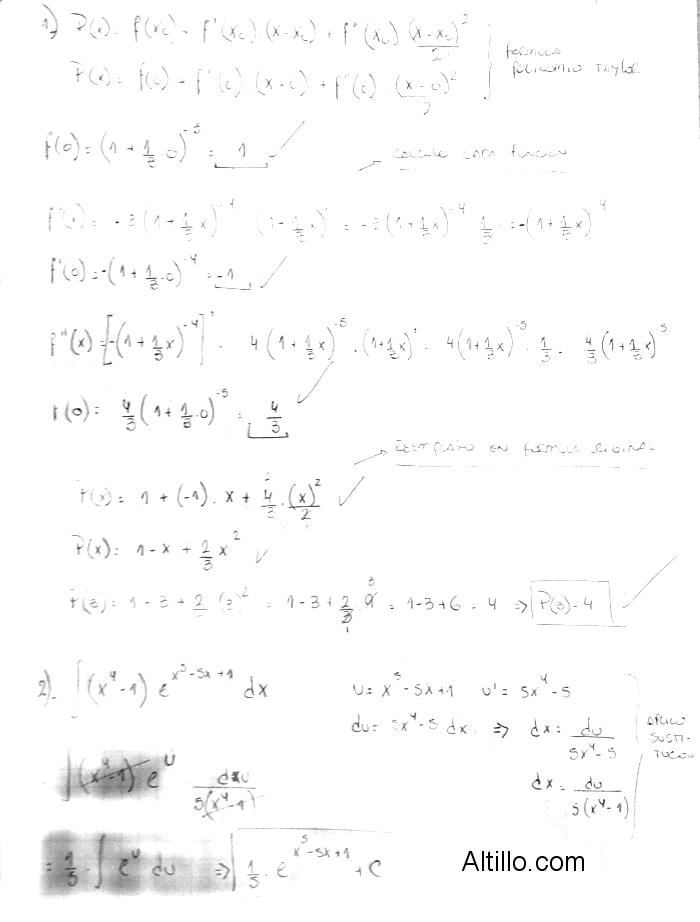 1) P(x) = f(x₀) - f'(x₀).(x-x₀) + f''(x₀) (x-x₀)²/2
P(x) = f(0) - f'(0).(x-0) + f''(0).(x-0)²/2
FORMULA
POLINOMIO TAYLOR
f(0) = (1 + 1/3 . 0)⁻³ = 1
→ CALCULO CADA FUNCION
f'(x) = -3(1 + 1/3 x)⁻⁴ (1 - 1/3 x)' = -3(1 + 1/3 x)⁻⁴ 1/3 = -(1 + 1/3 x)⁻⁴
f'(0) = -(1 + 1/3 . 0)⁻⁴ = -1
f''(x) = [-(1 + 1/3 x)⁻⁴]' . 4(1 + 1/3 x)⁻⁵ . (1 + 1/3 x)' = 4(1 + 1/3 x)⁻⁵ . 1/3 = 4/3 (1 + 1/3 x)⁵
f(0) = 4/3 (1 + 1/3 . 0)⁻⁵ = 4/3
EN FORMULA
P(x) = 1 + (-1) . x + 4/3 . (x)²/2
P(x) = 1 - x + 2/3 x²
P(3) = 1 - 3 + 2/3 (3)² = 1 - 3 + 2/3 . 9 = 1 - 3 + 6 = 4 ⇒ P(3) - 4
2) ∫(x⁴ - 1) e^(x⁵ - 5x + 1) dx
u = x⁵ - 5x + 1 u' = 5x⁴ - 5
du = 5x⁴ - 5 dx ⇒ dx = du/(5x⁴ - 5)
dx = du/(5(x⁴ - 1))
APLICO
SUSTI-
TUCION
∫(x⁴ - 1) e^u du/(5(x⁴ - 1))
= 1/5 . ∫ e^u du ⇒ 1/5 . e^(x⁵ - 5x + 1) + C
Altillo.com